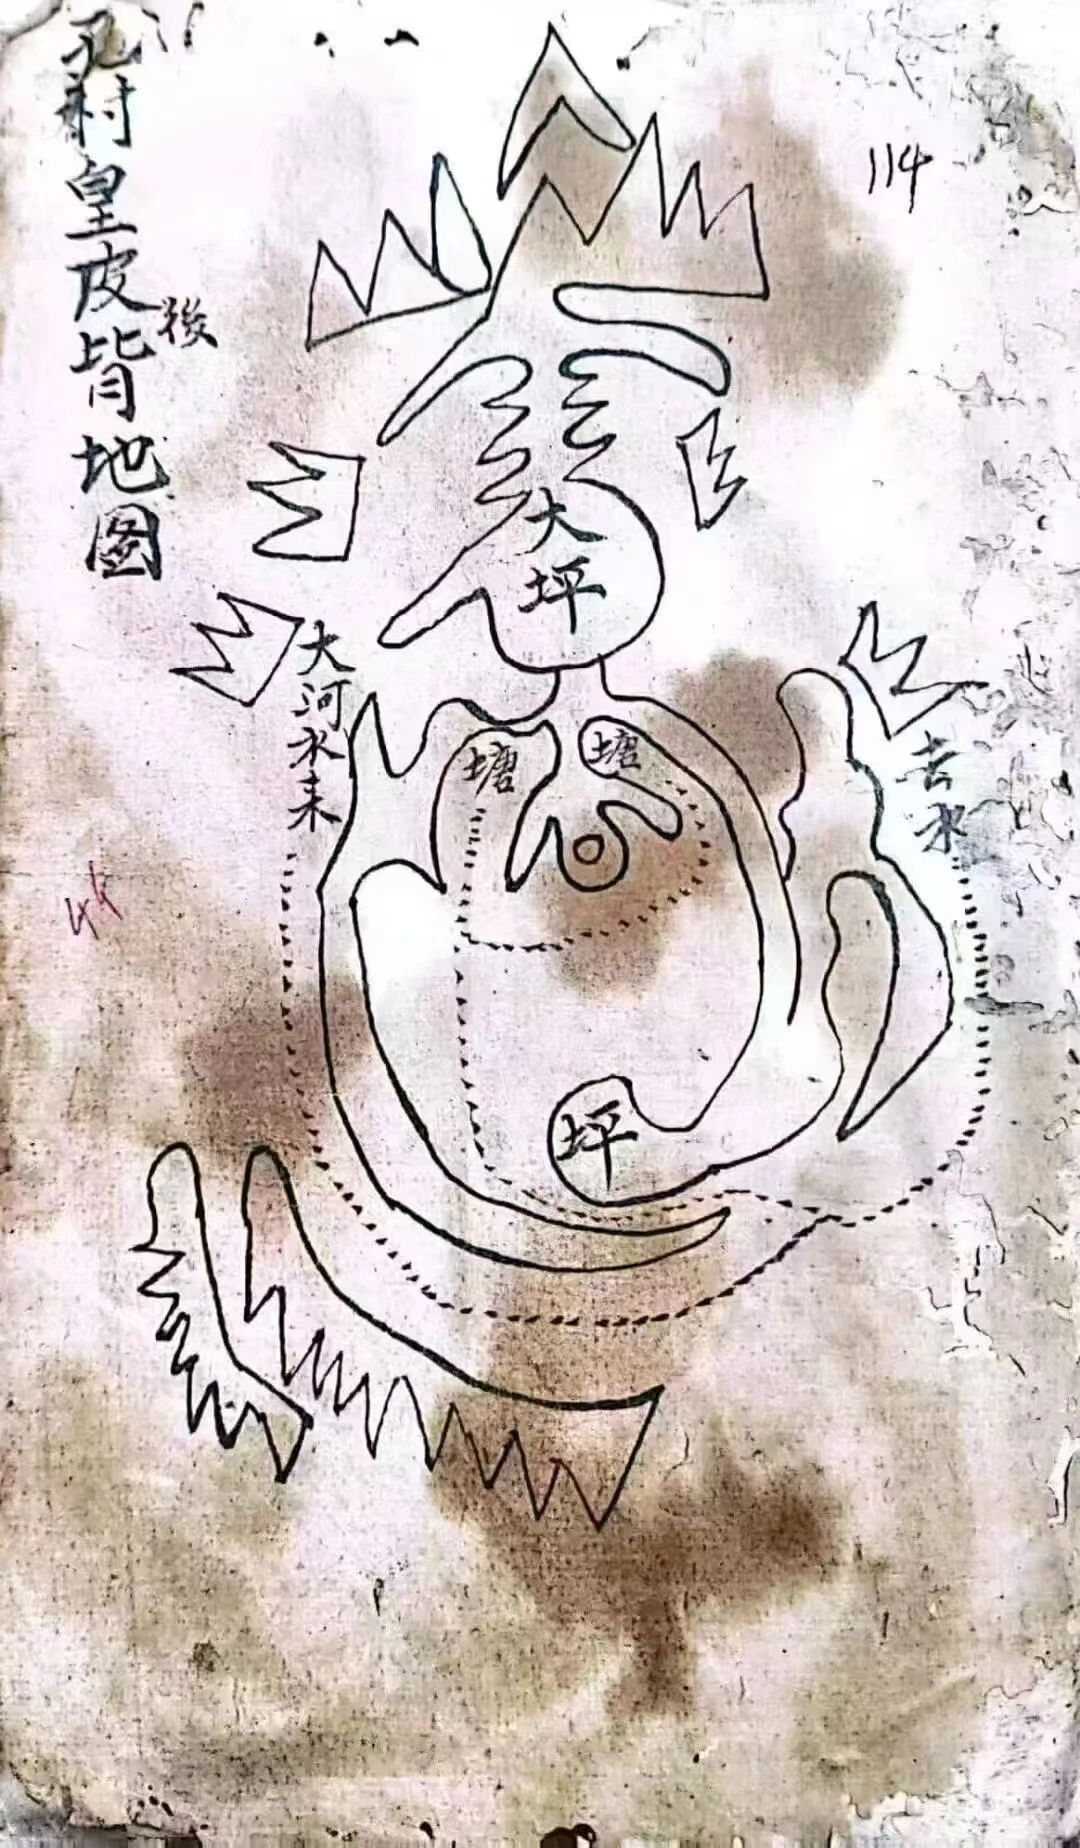 孔村皇皮背地图
後
114
大坪
大河水来
塘
塘
去水
44
坪